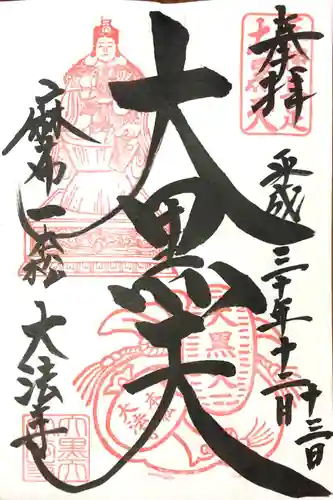 奉拝
平成三十年十二月
十三日
大黒天
麻布一本松
大法寺
大黒天
大法寺